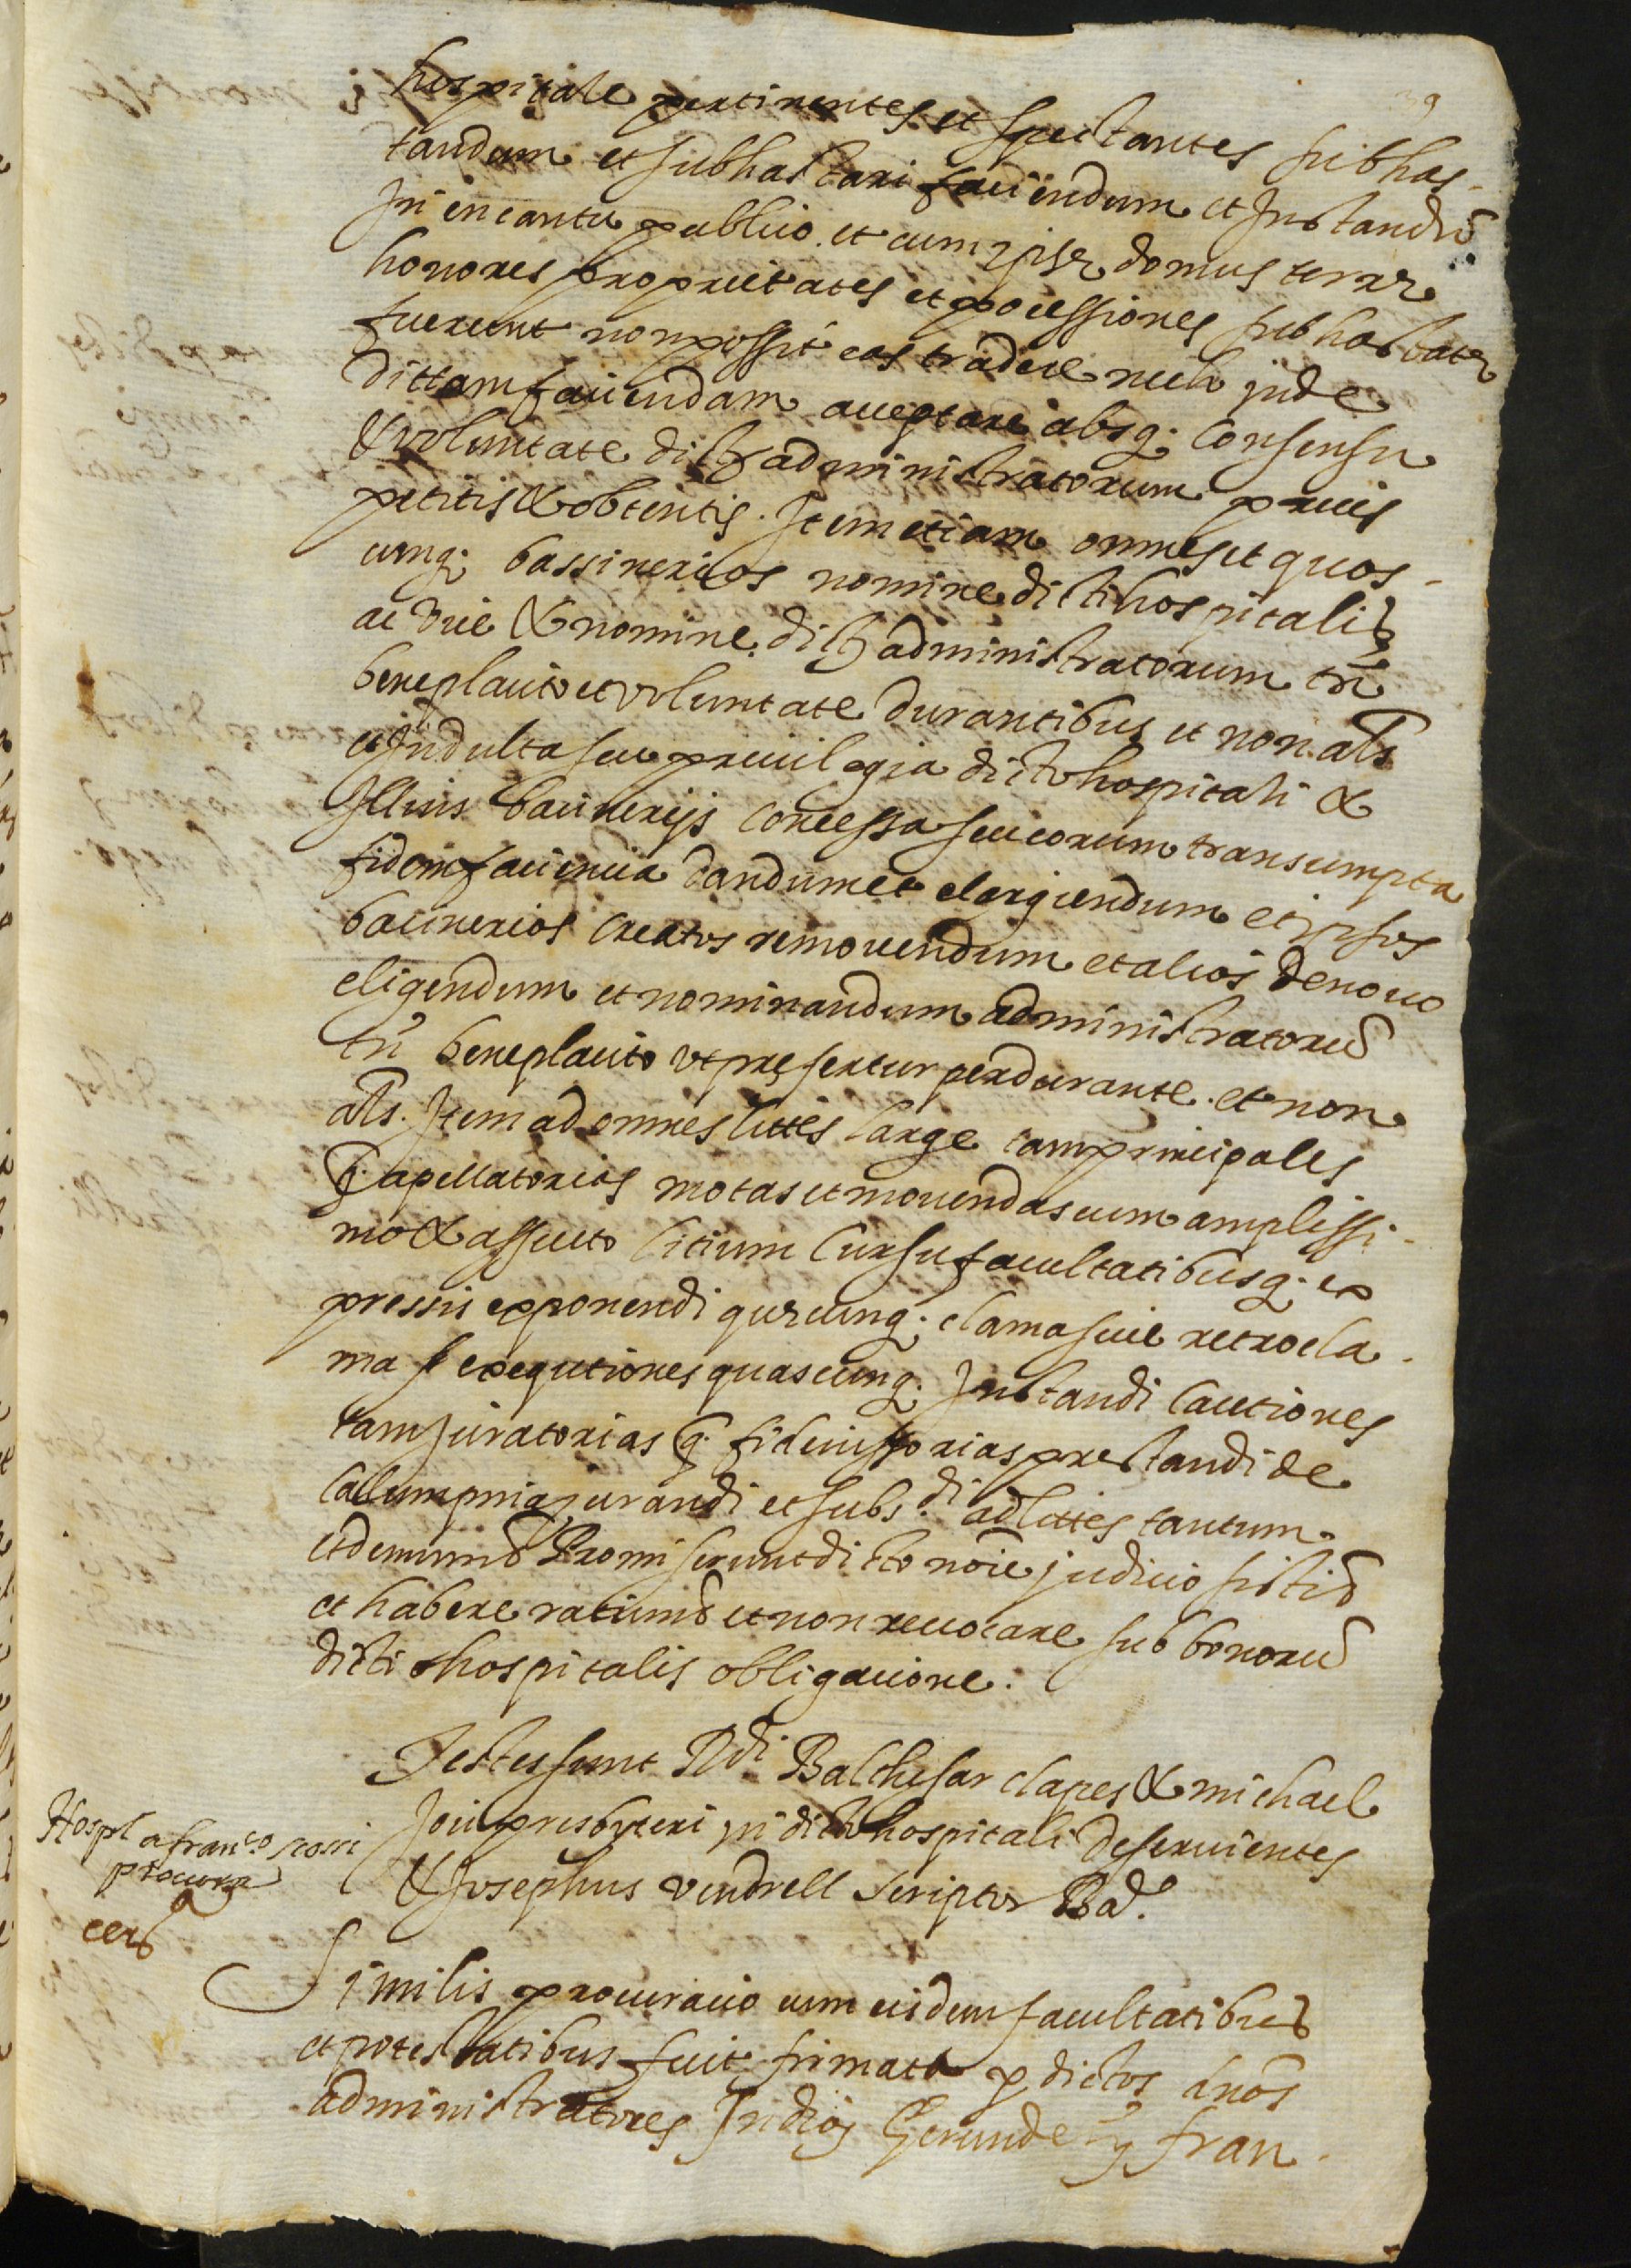 39
hospitale pertinentes et spectantes subhas-
tandum et subhastari faciendum et Instandũ
In encantu publico. et cum ipsę domus terrę
honores proprietates et pocessiones subhastatę
fuerint non possit eas tradere nech inde
dittam faciendam acceptare absq. consensu
& voluntate dictor administratorum prius
petitis & obtentis. Item etiam omnes et quos-
cunq. bassinerios nomine dicti hospitalis
ac vice & nomine dictor administratorum tñ
beneplacito et voluntate durantibus et non als
et Indulta seu privilegia dicto hospitali &
Illius bacinerijs concessa seu eorum transumpta
fidem faciencia dandum et elargiendum et ipsos
bacinerios creatos removendum et alios denovo
eligendum et nominandum administratorũ
tñ beneplacito ut prefertur perdurante. et non
als. Item ad omnes littes large tam principales
q. apellatorias motas et movendas cum amplissi-
mo & assueto litium cursu facultatibusq. ex
pressis exponendi quęcunq. clama sive retrocla-
ma et exequtiones quascunq. Instandi cautiones
tam juratorias q. fideiussorias prestandi de
calumpnia jurandi et subs.di ad littes tantum
et demum Promiserunt dicto noie judicio sisti
et habere ratum et non revocare sub bonorũ
dicti hospitalis obligacione.
Testes sunt Rdi Balthesar clapes & michael
Joii presbyteri in dicto hospitali deservientes
& Josephus vendrell scriptor Ba.
Hospl a franco
procura
Similis procuracio cum eisdem facultatibus
et potestatibus fuit firmata p dictos dnõs
administratores In diòs Gerunde fran-